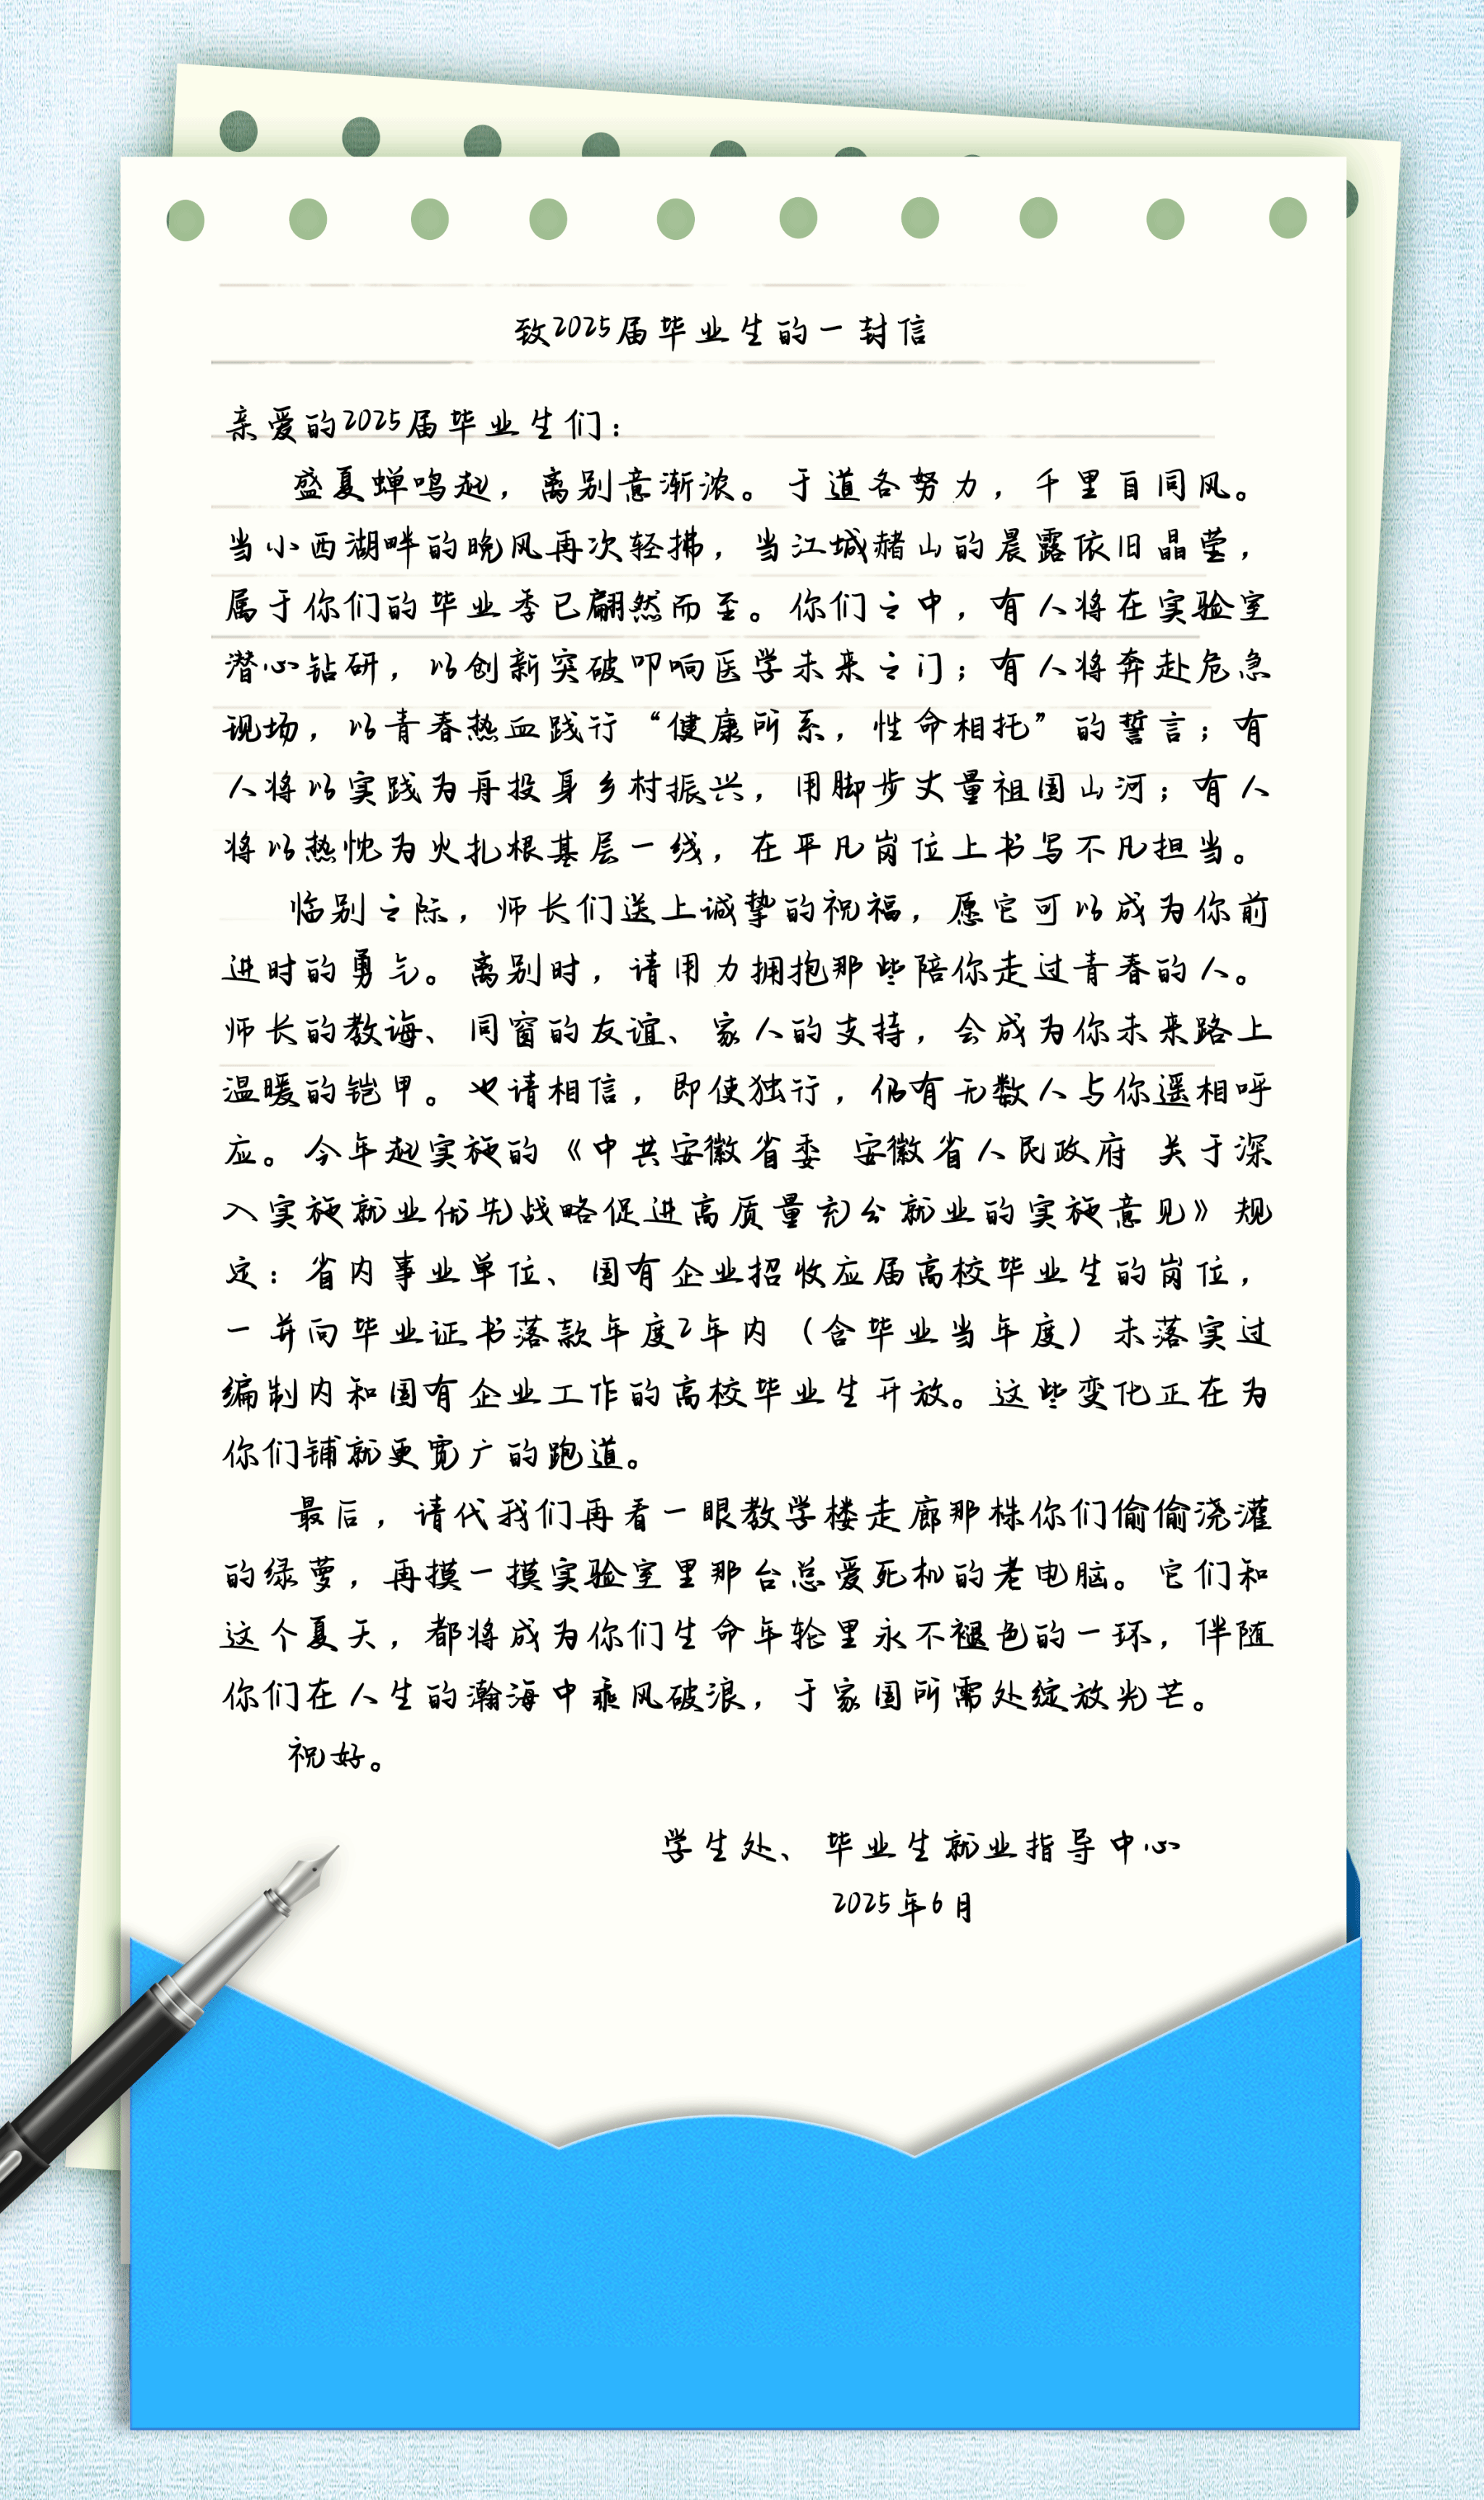 致2025届毕业生的一封信
亲爱的2025届毕业生们：
盛夏蝉鸣起，离别意渐浓。于道各努力，千里自同风。
当小西湖畔的晚风再次轻拂，当江城赭山的晨露依旧晶莹，
属于你们的毕业季已翩然而至。你们之中，有人将在实验室
潜心钻研，以创新突破叩响医学未来之门；有人将奔赴危急
现场，以青春热血践行“健康所系，性命相托”的誓言；有
人将以实践为舟投身乡村振兴，用脚步丈量祖国山河；有人
将以热忱为火扎根基层一线，在平凡岗位上书写不凡担当。
临别之际，师长们送上诚挚的祝福，愿它可以成为你前
进时的勇气。离别时，请用力拥抱那些陪你走过青春的人。
师长的教诲、同窗的友谊、家人的支持，会成为你未来路上
温暖的铠甲。也请相信，即使独行，仍有无数人与你遥相呼
应。今年起实施的《中共安徽省委 安徽省人民政府 关于深
入实施就业优先战略促进高质量充分就业的实施意见》规
定：省内事业单位、国有企业招收应届高校毕业生的岗位，
一并向毕业证书落款年度2年内（含毕业当年度）未落实过
编制内和国有企业工作的高校毕业生开放。这些变化正在为
你们铺就更宽广的跑道。
最后，请代我们再看一眼教学楼走廊那株你们偷偷浇灌
的绿萝，再摸一摸实验室里那台总爱死机的老电脑。它们和
这个夏天，都将成为你们生命年轮里永不褪色的一环，伴随
你们在人生的瀚海中乘风破浪，于家国所需处绽放光芒。
祝好。
学生处、毕业生就业指导中心
2025年6月